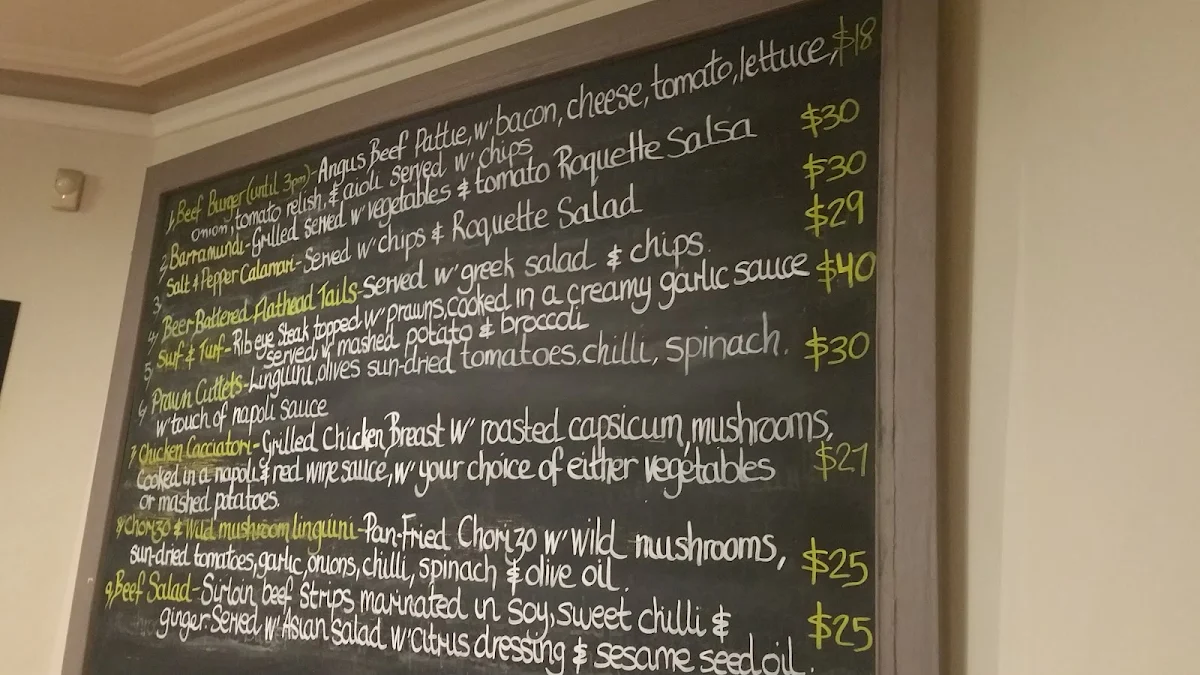 1, Beef Burger (until 3pm) - Angus Beef Pattie, w' bacon, cheese, tomato, lettuce, $18
onion, tomato relish, & aioli served w' chips
2, Barramundi - Grilled served w' vegetables & tomato Roquette Salsa $30
3, Salt & Pepper Calamari - Served w' chips & Roquette Salad $30
4, Beer Battered Flathead Tails - Served w' greek salad & chips. $29
5, Surf & Turf - Rib eye Steak topped w' prawns, cooked in a creamy garlic sauce $40
served w' mashed potato & broccoli
6, Prawn Cutlets - Linguini, olives sun-dried tomatoes, chilli, spinach. $30
w' touch of napoli sauce
7, Chicken Cacciatori - Grilled Chicken Breast w' roasted capsicum, mushrooms,
Cooked in a napoli & red wine sauce, w' your choice of either vegetables $27
or mashed potatoes.
8, Chorizo & Wild mushroom linguini - Pan-Fried Chorizo w' Wild mushrooms,
sun-dried tomatoes, garlic, onions, chilli, spinach & olive oil. $25
9, Beef Salad - Sirloin beef Strips marinated in Soy, sweet chilli &
ginger. Served w' Asian salad w' citrus dressing & sesame seed oil. $25